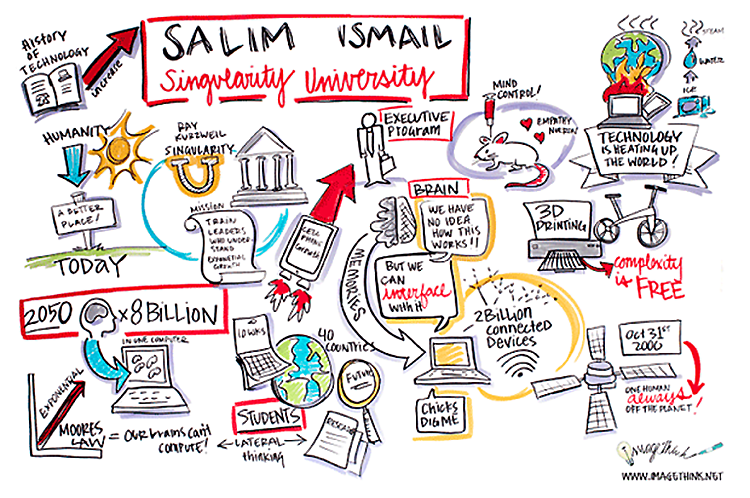 HISTORY
OF
TECHNOLOGY
increase
SALIM ISMAIL
Singularity University
HUMANITY
A BETTER
PLACE!
TODAY
RAY
KURZWEIL
SINGULARITY
MISSION
TRAIN
LEADERS
WHO UNDER
STAND
EXPONENTIAL
GROWTH
CELL
PHONE
Growth
EXECUTIVE
PROGRAM
MIND
CONTROL!
EMPATHY
STEAM
WATER
ICE
TECHNOLOGY
IS HEATING UP
THE WORLD!
BRAIN
WE HAVE
NO IDEA
HOW THIS
WORKS!!
BUT WE
CAN
interface
WITH it
MEMORIES
3D
PRINTING
complexity
is FREE
2050 x8 BILLION
IN ONE COMPUTER
EXPONENTIAL
MOORES
LAW = Our brains can't
compute!
10 WKS
40
COUNTRIES
STUDENTS
LATERAL
thinking
FUTURE
RESEARCH
2 Billion
Connected
Devices
Chicks
Dig ME
Oct 31ST
2000
ONE HUMAN
always
OFF THE PLANET!
ImageThink
WWW.IMAGETHINK.NET